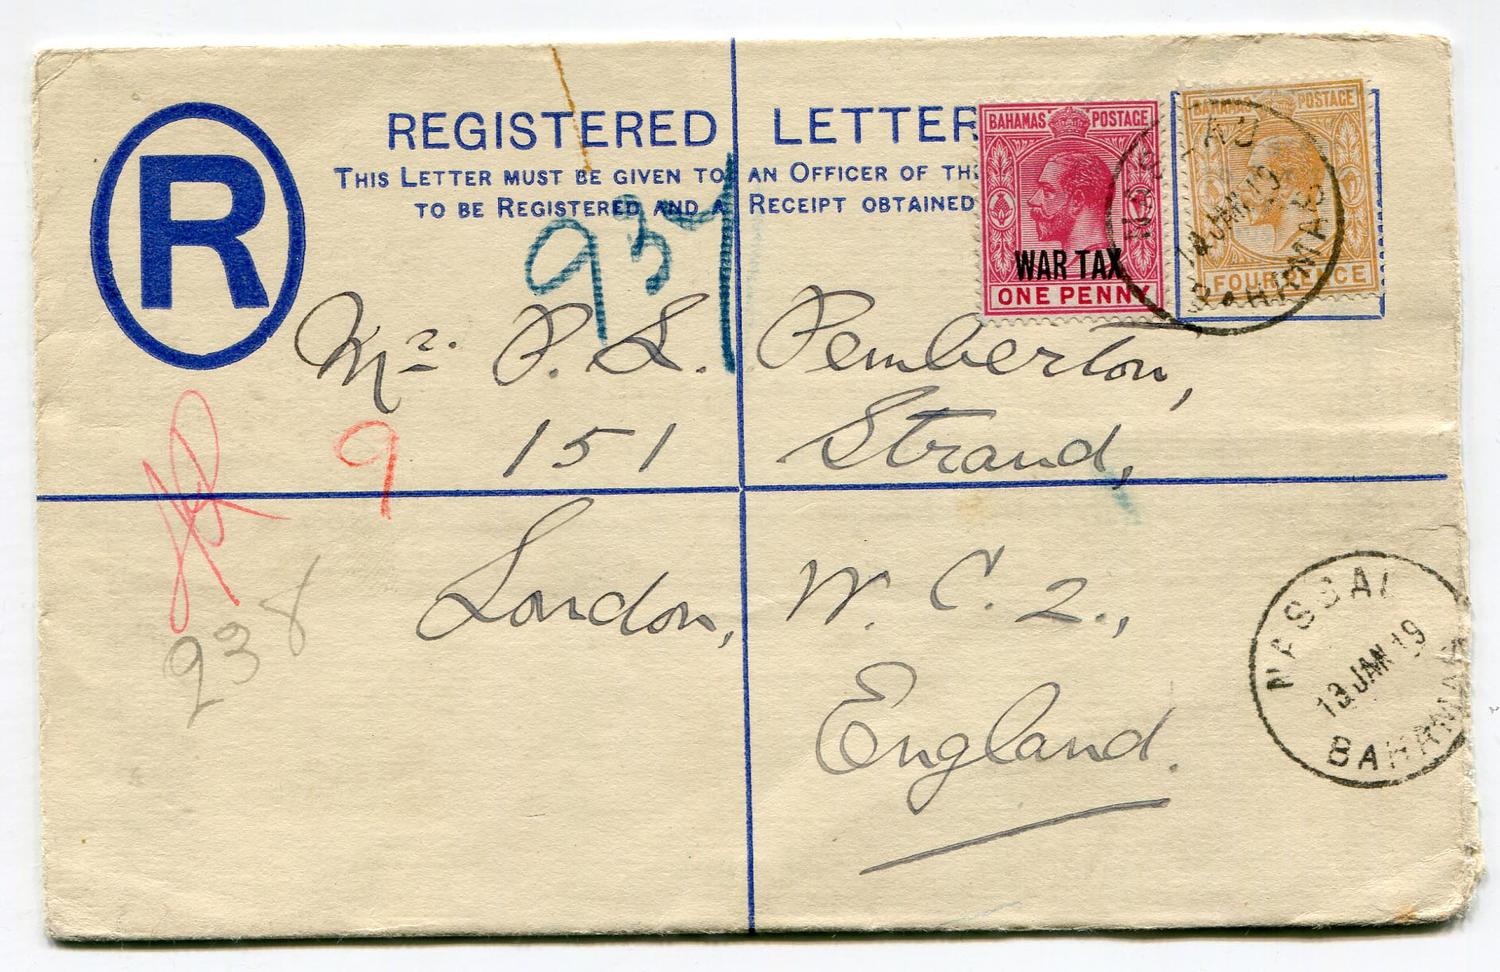 R
REGISTERED LETTER
THIS LETTER MUST BE GIVEN TO AN OFFICER OF TH
TO BE REGISTERED AND A RECEIPT OBTAINED
BAHAMAS POSTAGE
WAR TAX
ONE PENNY
BAHAMAS POSTAGE
FOUR PENCE
NASSAU
13 JAN 19
BAHAMAS
937
Mr. P. L. Pemberton,
151 Strand,
9
London, W. C. 2.,
England.
938
NASSAU
13 JAN 19
BAHAMAS